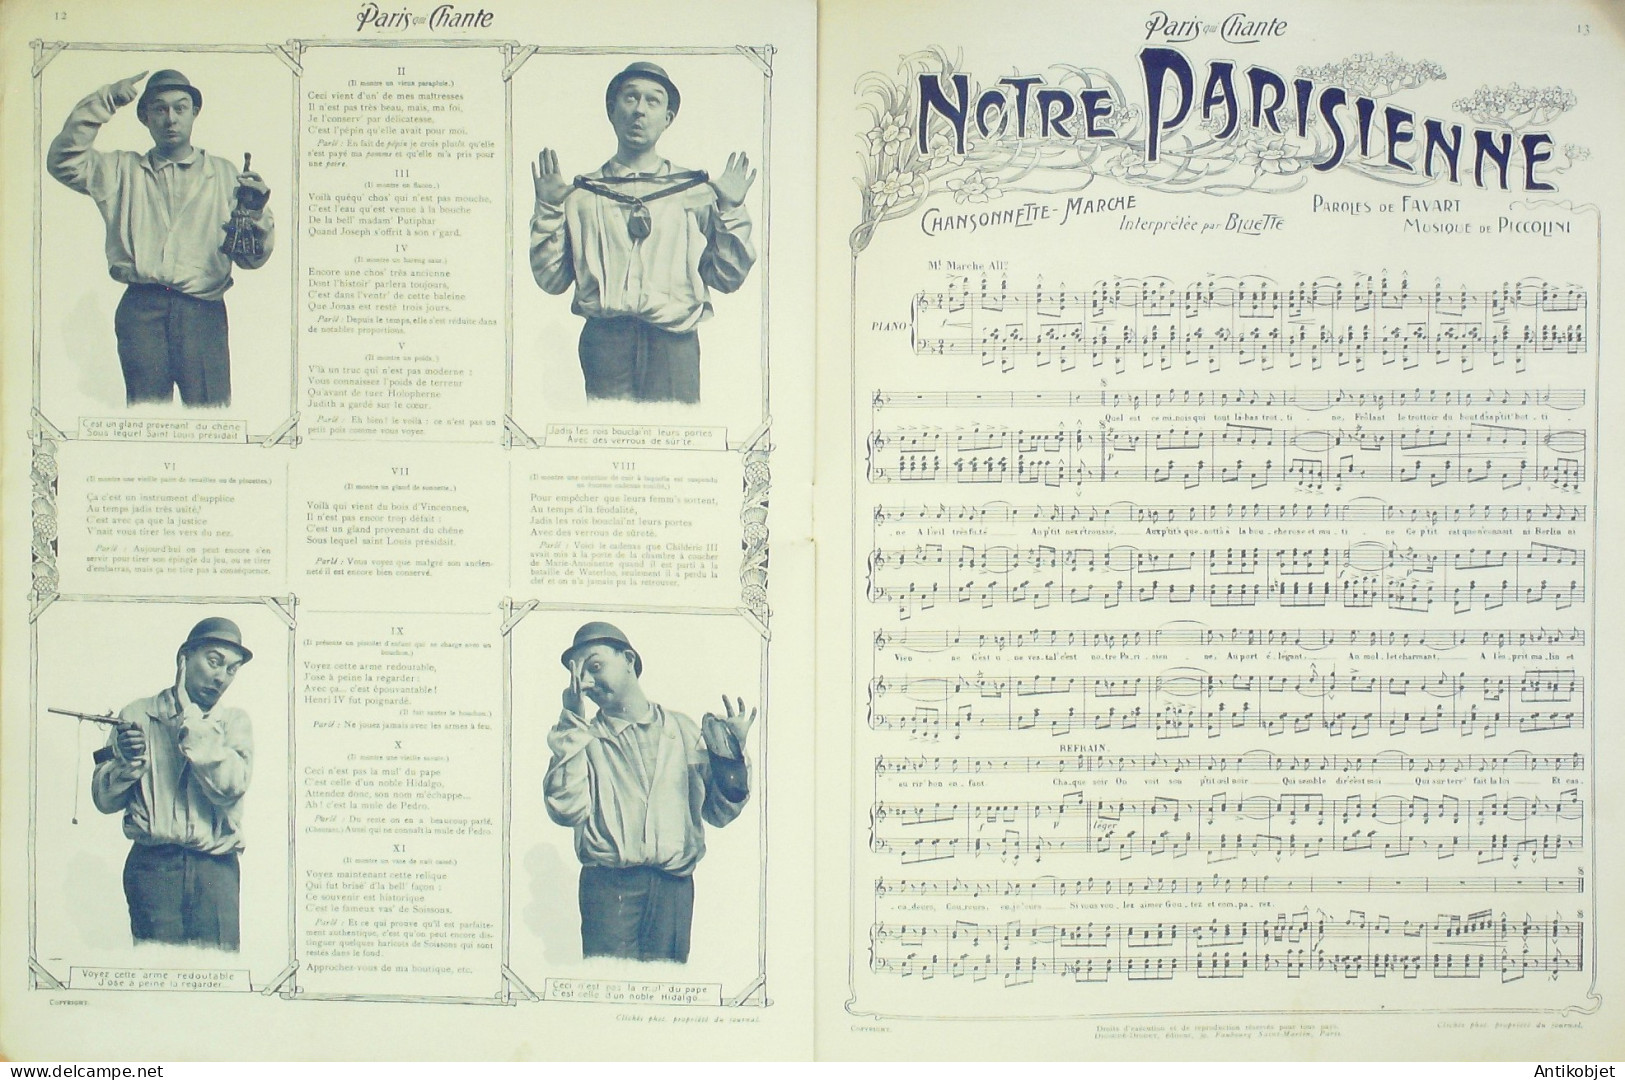 12
Paris qui Chante
II
(Il montre un vieux parapluie.)
Ceci vient d'un' de mes maîtresses
Il n'est pas très beau, mais, ma foi,
Je l'conserv' par délicatesse,
C'est l'pépin qu'elle avait pour moi.
Parlé : En fait de pépin je crois plutôt qu'elle
s'est payé ma pomme et qu'elle m'a pris pour
une poire.
III
(Il montre un flacon.)
Voilà quéqu' chos' qui n'est pas mouche,
C'est l'eau qu'est venue à la bouche
De la bell' madam' Putiphar
Quand Joseph s'offrit à son r'gard.
IV
(Il montre un hareng saur.)
Encore une chos' très ancienne
Dont l'histoir' parlera toujours,
C'est dans l'ventr' de cette baleine
Que Jonas est resté trois jours.
Parlé : Depuis le temps, elle s'est réduite dans
de notables proportions.
V
(Il montre un poids.)
V'là un truc qui n'est pas moderne :
Vous connaissez l'poids de terreur
Qu'avant de tuer Holopherne
Judith a gardé sur le cœur.
Parlé : Eh bien! le voilà : ce n'est pas un
petit pois comme vous voyez.
C'est un gland provenant du chêne
Sous lequel Saint Louis présidait
Jadis les rois bouclaï'nt leurs portes
Avec des verrous de sûr'té.
VI
(Il montre une vieille paire de tenailles ou de pincettes.)
Ça c'est un instrument d'supplice
Au temps jadis très usité,
C'est avec ça que la justice
V'nait vous tirer les vers du nez.
Parlé : Aujourd'hui on peut encore s'en
servir pour tirer son épingle du jeu, ou se tirer
d'embarras, mais ça ne tire pas à conséquence.
VII
(Il montre un gland de sonnette.)
Voilà qui vient du bois d'Vincennes,
Il n'est pas encor trop défait :
C'est un gland provenant du chêne
Sous lequel saint Louis présidait.
Parlé : Vous voyez que malgré son ancien-
neté il est encore bien conservé.
VIII
Pour empêcher que leurs femm's sortent,
Au temps d'la féodalité,
Jadis les rois bouclaï'nt leurs portes
Avec des verrous de sûreté.
Parlé : Voici le cadenas que Childéric III
avait mis à la porte de la chambre à coucher
de Marie-Antoinette quand il est parti à la
bataille de Waterloo, seulement il a perdu la
clef et on n'a jamais pu la retrouver.
IX
(Il présente un pistolet d'enfant qui se charge avec un
bouchon.)
Voyez cette arme redoutable,
J'ose à peine la regarder :
Avec ça... c'est épouvantable!
Henri IV fut poignardé.
(Il fait sauter le bouchon.)
Parlé : Ne jouez jamais avec les armes à feu.
X
(Il montre une vieille savate.)
Ceci n'est pas la mul' du pape
C'est celle d'un noble Hidalgo,
Attendez donc, son nom m'échappe...
Ah! c'est la mule de Pedro.
Parlé : Du reste on en a beaucoup parlé,
(Chantant.) Aussi qui ne connaît la mule de Pedro.
XI
(Il montre un vase de nuit cassé.)
Voyez maintenant cette relique
Qui fut brisé' d'la bell' façon ;
Ce souvenir est historique
C'est le fameux vas' de Soissons.
Parlé : Et ce qui prouve qu'il est parfaite-
ment authentique, c'est qu'on peut encore dis-
tinguer quelques haricots de Soissons qui sont
restés dans le fond.
Approchez-vous de ma boutique, etc.
Voyez cette arme redoutable
J'ose à peine la regarder...
Ceci n'est pas la mul' du pape
C'est celle d'un noble Hidalgo......
COPYRIGHT.
Clichés phot. propriété du journal.
Paris qui Chante
13
NOTRE PARISIENNE
CHANSONNETTE-MARCHE
Interprétée par BLUETTE
PAROLES DE FAVART
MUSIQUE DE PICCOLINI
Mt Marche Allo
PIANO
Quel est ce minois qui tout là-bas trotti - ne, Frôlant le trottoir du bout d'ses p'tit' botti -
ne A l'œil très fu té Au p'tit nez r'troussé, Aux p'tit's quenott's à la bouche rose et muti - ne Ce p'tit rat que n'connait ni Berlin ni
Vien - ne C'est u ne ves tal' c'est no tre Pa ri sien - ne, Au port é légant, Au mollet charmant, A l'esprit malin et
au rir' bon en fant. Chaque soir On voit son p'tit œil noir Qui semble dir' c'est moi Qui sur terr' fait la loi Et cas -
ca deurs, Coureurs, enjôleurs Si vous voulez aimer Goutez et comparez.
REFRAIN.
léger
COPYRIGHT.
Droits d'exécution et de reproduction réservés pour tous pays.
Clichés phot. propriété du journal.
Antikobjet